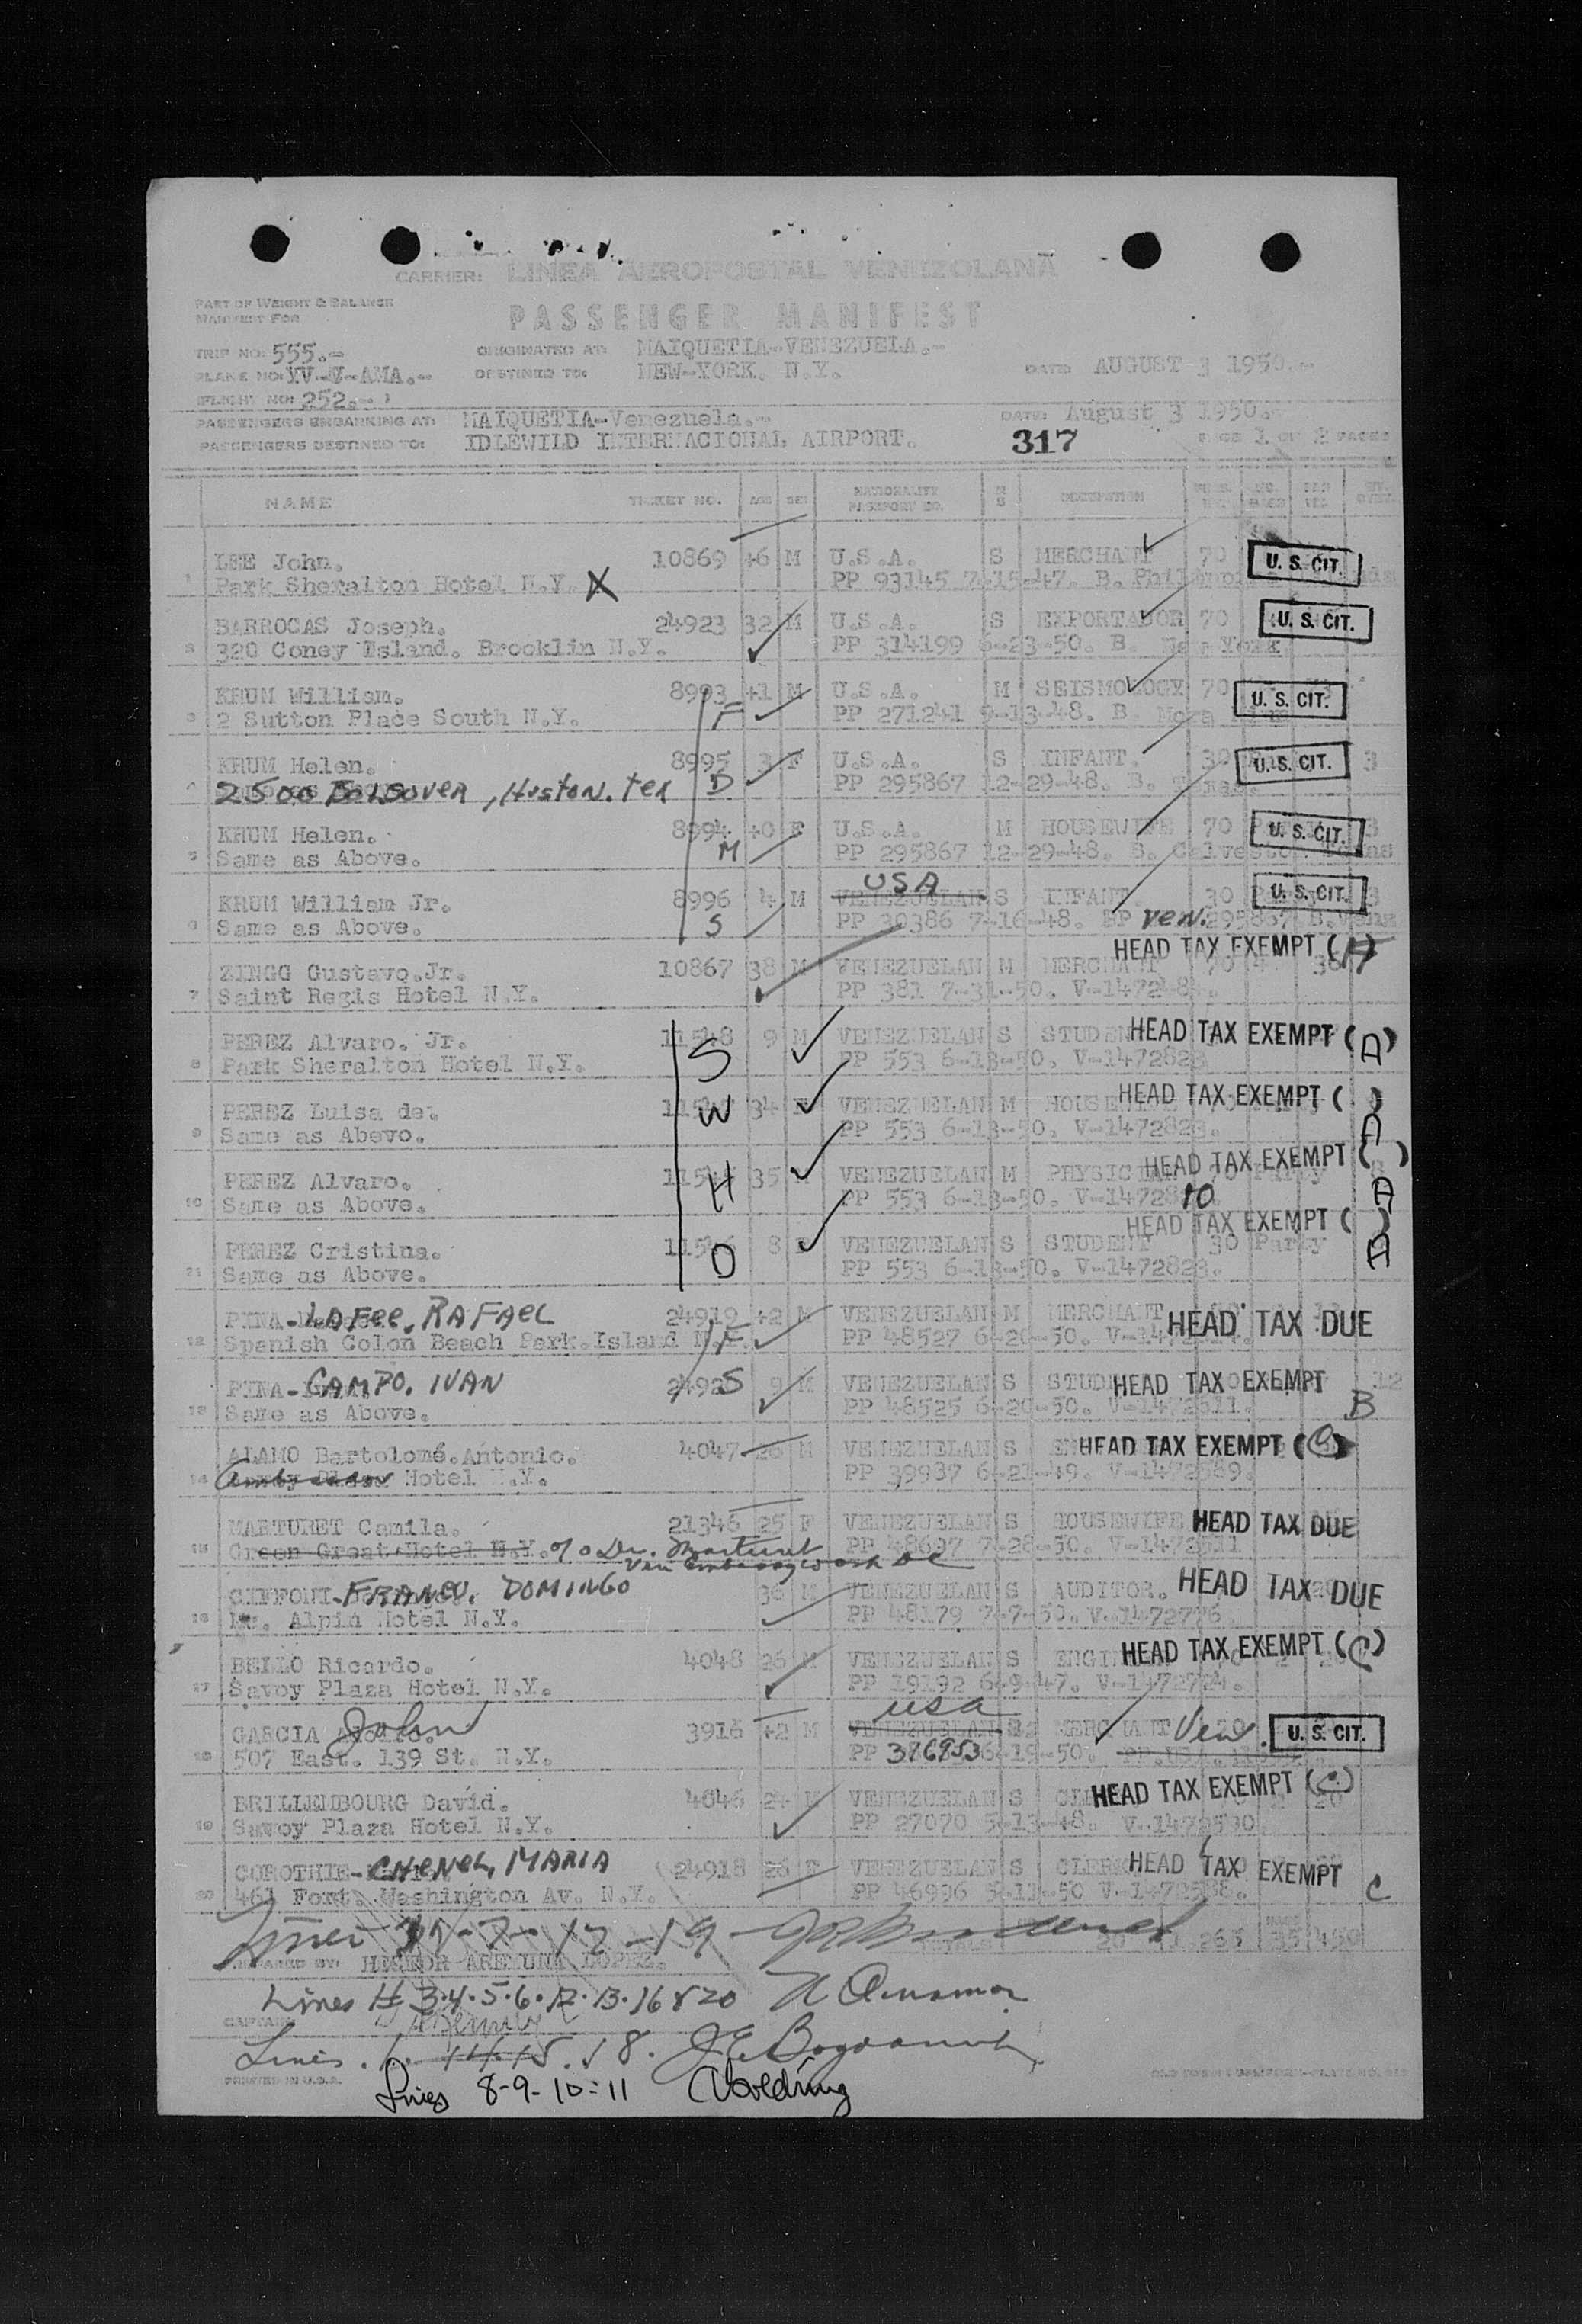 CARRIER: LINEA AEROPOSTAL VENEZOLANA
PART OF WEIGHT & BALANCE
MANIFEST FOR
PASSENGER MANIFEST
TRIP NO: 555.- ORIGINATED AT: MAIQUETIA-VENEZUELA.-
PLANE NO: YV-V-AMA.- DESTINED TO: NEW-YORK. N.Y. DATE: AUGUST 3 1950.-
(FLIGHT NO: 252.- )
PASSENGERS EMBARKING AT: MAIQUETIA-Venezuela.- DATE: August 3 1950.
PASSENGERS DESTINED TO: IDLEWILD INTERNACIONAL AIRPORT. 317 PAGE 1 OF 2 PAGES
NAME TICKET NO. AGE SEX NATIONALITY PASSPORT NO. M S OCCUPATION
LEE John. 10869 46 M U.S.A. S MERCHANT 70 U. S. CIT.
1 Park Sheralton Hotel N.Y. X PP 93145 7-15-47. B.
BARROCAS Joseph. 24923 32 M U.S.A. S EXPORTADOR 70 U. S. CIT.
2 320 Coney Island. Brooklin N.Y. PP 314199 6-23-50. B. New York
KRUM William. 8993 41 M U.S.A. M SEISMOLOGY 70 U. S. CIT.
3 2 Sutton Place South N.Y. F PP 271241 9-13-48. B.
KRUM Helen. 8995 3 F U.S.A. S INFANT. 30 U. S. CIT. 3
4 2500 BOLSOVER, Huston. Tex D PP 295867 12-29-48. B.
KRUM Helen. 8994 40 F U.S.A. M HOUSEWIFE 70 U. S. CIT. 3
5 Same as Above. M PP 295867 12-29-48. B. Galveston Texas
KRUM William Jr. 8996 4 M VENEZUELAN USA S INFANT. 30 U. S. CIT. 3
6 Same as Above. S PP 30386 7-16-48. PP ven. 295867
HEAD TAX EXEMPT (A)
ZINGG Gustavo.Jr. 10867 38 M VENEZUELAN M MERCHANT 70
7 Saint Regis Hotel N.Y. PP 381 7-31-50. V-147248
PEREZ Alvaro. Jr. 11548 9 M VENEZUELAN S STUDENT HEAD TAX EXEMPT (A)
8 Park Sheralton Hotel N.Y. S PP 553 6-13-50. V-1472823
PEREZ Luisa de. 34 F VENEZUELAN M HOUSEWIFE HEAD TAX EXEMPT ( )
9 Same as Abovo. W PP 553 6-13-50. V-1472823. A
PEREZ Alvaro. 35 M VENEZUELAN M PHYSICIAN HEAD TAX EXEMPT ( ) Party
10 Same as Above. H PP 553 6-13-50. V-14728 10 A
HEAD TAX EXEMPT ( )
PEREZ Cristina. 8 F VENEZUELAN S STUDENT 30 Party A
11 Same as Above. D PP 553 6-13-50. V-1472823.
PINA-LAFEE, RAFAEL 24919 42 M VENEZUELAN M MERCHANT HEAD TAX DUE
12 Spanish Colon Beach Park.Island N.Y. F PP 48527 6-20-50.
PINA-CAMPO, IVAN S 9 M VENEZUELAN S STUDENT HEAD TAX EXEMPT 12
13 Same as Above. PP 48525 6-20-50. V-1472611. B
ALAMO Bartolomé.Antonio. 4047 26 M VENEZUELAN S HEAD TAX EXEMPT (C)
14 Ambassador Hotel N.Y. PP 39937 6-21-49. V-1472589.
MARTURET Camila. 21346 25 F VENEZUELAN S HOUSEWIFE HEAD TAX DUE
15 Green Great Hotel N.Y. c/o Dr. Marturet PP 48697 7-28-50. V-1472511
Ven Embassy Wash DC
GIFFONI-FRANCO, DOMINGO 36 M VENEZUELAN S AUDITOR. HEAD TAX DUE
16 Mc. Alpin Hotel N.Y. PP 48179 7-7-50. V-1472776
BELLO Ricardo. 4048 26 M VENEZUELAN S HEAD TAX EXEMPT (C)
17 Savoy Plaza Hotel N.Y. PP 19192 6-9-47. V-1472724.
GARCIA John 3916 42 M VENEZUELAN usa MERCHANT Ven. U. S. CIT.
18 507 East. 139 St. N.Y. PP 376853 6-19-50.
BRILLEMBOURG David. 4046 24 M VENEZUELAN S HEAD TAX EXEMPT (C)
19 Savoy Plaza Hotel N.Y. PP 27070 5-13-48. V-1472590.
COROTHIE-CHENEL, MARIA 24918 26 F VENEZUELAN S CLERK HEAD TAX EXEMPT
20 461 Fort. Washington Av. N.Y. PP 46996 5-11-50 V-1472588. C
PREPARED BY: HECTOR LOPEZ.
Lines # 3.4.5.6.12.13.16 & 20
CAPTAIN
Lines 1. 14.15. 18.
PRINTED IN U.S.A.
Lines 8-9-10-11